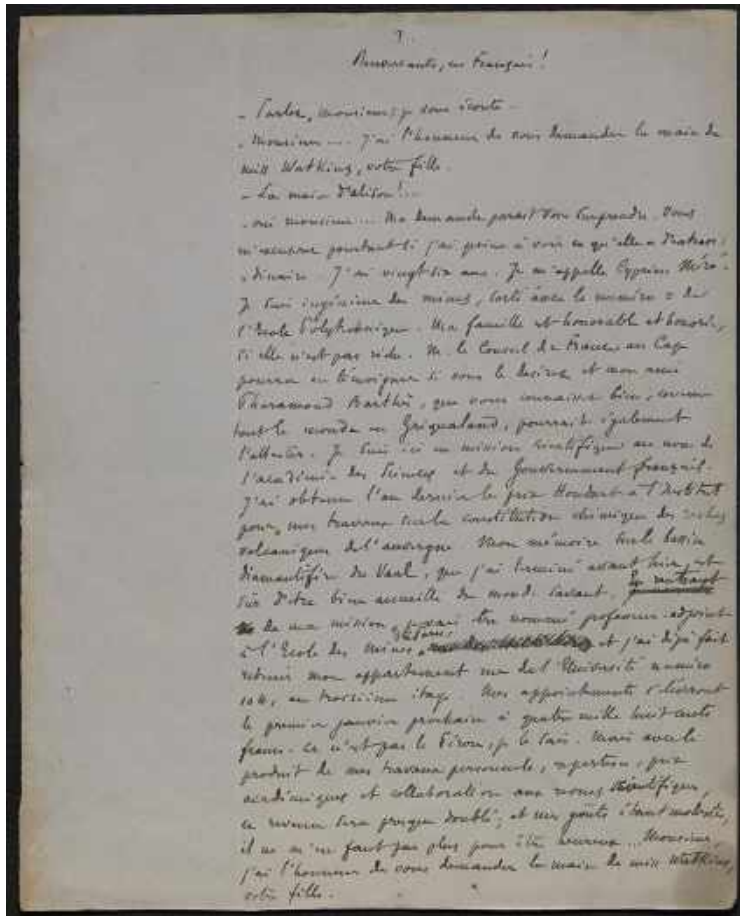 I.
Renversants, ces Français!
- Parlez, monsieur, je vous écoute -
- Monsieur.... j'ai l'honneur de vous demander la main de
miss Watkins, votre fille.
- La main d'Alison!...
- oui monsieur... Ma demande parait vous surprendre. Vous
m'excuserez pourtant si j'ai peine à voir ce qu'elle a d'extraor-
dinaire. J'ai vingt six ans. Je m'appelle Cyprien Méré.
Je suis ingénieur des mines, sorti avec le numéro 2 de
l'Ecole Polytechnique. Ma famille est honorable et honorée,
si elle n'est pas riche. M. le Consul de France au Cap
pourra en témoigner si vous le désirez et mon ami
Pharamond Barthès, que vous connaissez bien, comme
tout le monde en Griqualand, pourrait également
l'attester. Je suis ici en mission scientifique au nom de
l'académie des Sciences et du Gouvernement français.
J'ai obtenu l'an dernier le prix Houdart à l'Institut
pour mes travaux sur la constitution chimique des roches
volcaniques de l'auvergne. Mon mémoire sur le bassin
diamantifère du Vaal, que j'ai terminé avant hier, est
sûr d'être bien accueilli du monde savant. En rentrant
de ma mission, je vais être nommé professeur adjoint
à l'Ecole des mines de Paris, et j'ai déjà fait
retenir mon appartement rue de l'Université numéro
104, au troisième étage. Mes appointements s'élèveront
le premier janvier prochain à quatre mille huit cents
francs. Ce n'est pas le Pérou, je le sais. Mais avec le
produit de mes travaux personnels, expertises, prix
académiques et collaboration aux revues scientifiques,
ce revenu sera presque doublé; et mes goûts étant modestes,
il ne m'en faut pas plus pour être heureux... Monsieur,
j'ai l'honneur de vous demander la main de miss Watkins,
votre fille.